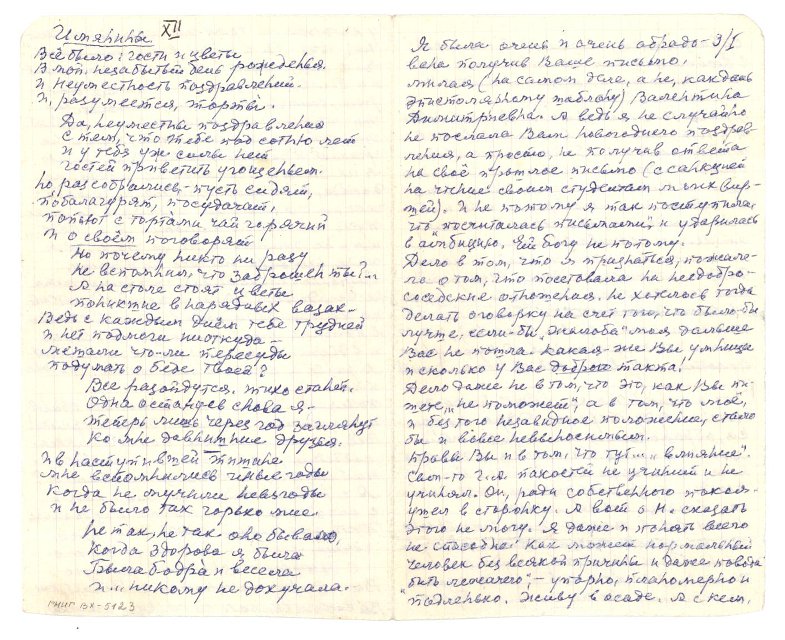 Именины XII
Всё было: гости и цветы
В мой незабытый день рожденья.
И неуместность поздравлений.
И, разумеется, торты.
Да, неуместны поздравления
с тем, что тебе под сотню лет
и у тебя уж силы нет
гостей приветить угощеньем.
Но, раз собрались – пусть сидят,
побалагурят, посудачат,
попьют с тортами чай горячий
и о своём поговорят
Но почему никто ни разу
не вспомнил, что заброшен ты?..
А на столе стоят цветы
поникшие в нарядных вазах.
Ведь с каждым днём тебе трудней
и нет подмоги ниоткуда –
мешали что-ли пересуды
подумать о беде твоей?
Все разойдутся. Тихо станет.
Одна останусь снова я –
теперь лишь через год заглянут
ко мне давнишние друзья.
И в наступившей тишине
мне вспомнились иные годы
когда не мучили невзгоды
и не было так горько мне
не так, не так оно бывало,
когда здорова я была
Была бодра и весела
и... никому не докучала.
ГМИГ ВХ-5123
Я была очень и очень обрадо- 3/I
вана получив Ваше письмо,
милая (на самом деле, а не, как дань
эпистолярному шаблону) Валентина
Димитриевна. А ведь я не случайно
не послала Вам новогоднего поздрав-
ления, а просто, не получив ответа
на своё прошлое письмо (с санкцией
на чтение своим студентам
). И не потому я так поступила,
что "посчиталась письмами" и ударилась
в амбицию, ей богу не потому.
Дело в том, что я признаться, пожале-
ла о том, что посетовала на недобро-
соседские отношения. Не хотелось тогда
делать оговорку на счёт того, что было-бы
лучше, если-бы "жалоба" моя дальше
Вас не пошла. Какая-же Вы умница
и сколько у Вас доброго такта!
Дело даже не в том, что это, как Вы пи-
шете, "не поможет", а в том, что моё,
и без того незавидное положение, стало
бы и вовсе невыносимым.
Правы Вы и в том, что тут... "влияние".
Сам-то пакостей не учинит и не
учинял. Он, ради собственного покоя –
ушел в сторонку. А вот о Н. сказать
этого не могу. Я даже и понять всего
не способна: как может нормальный
человек без всякой причины и даже повода
"бить лежачего", – упорно, планомерно и
"подленько. Живу в осаде. А с кем,